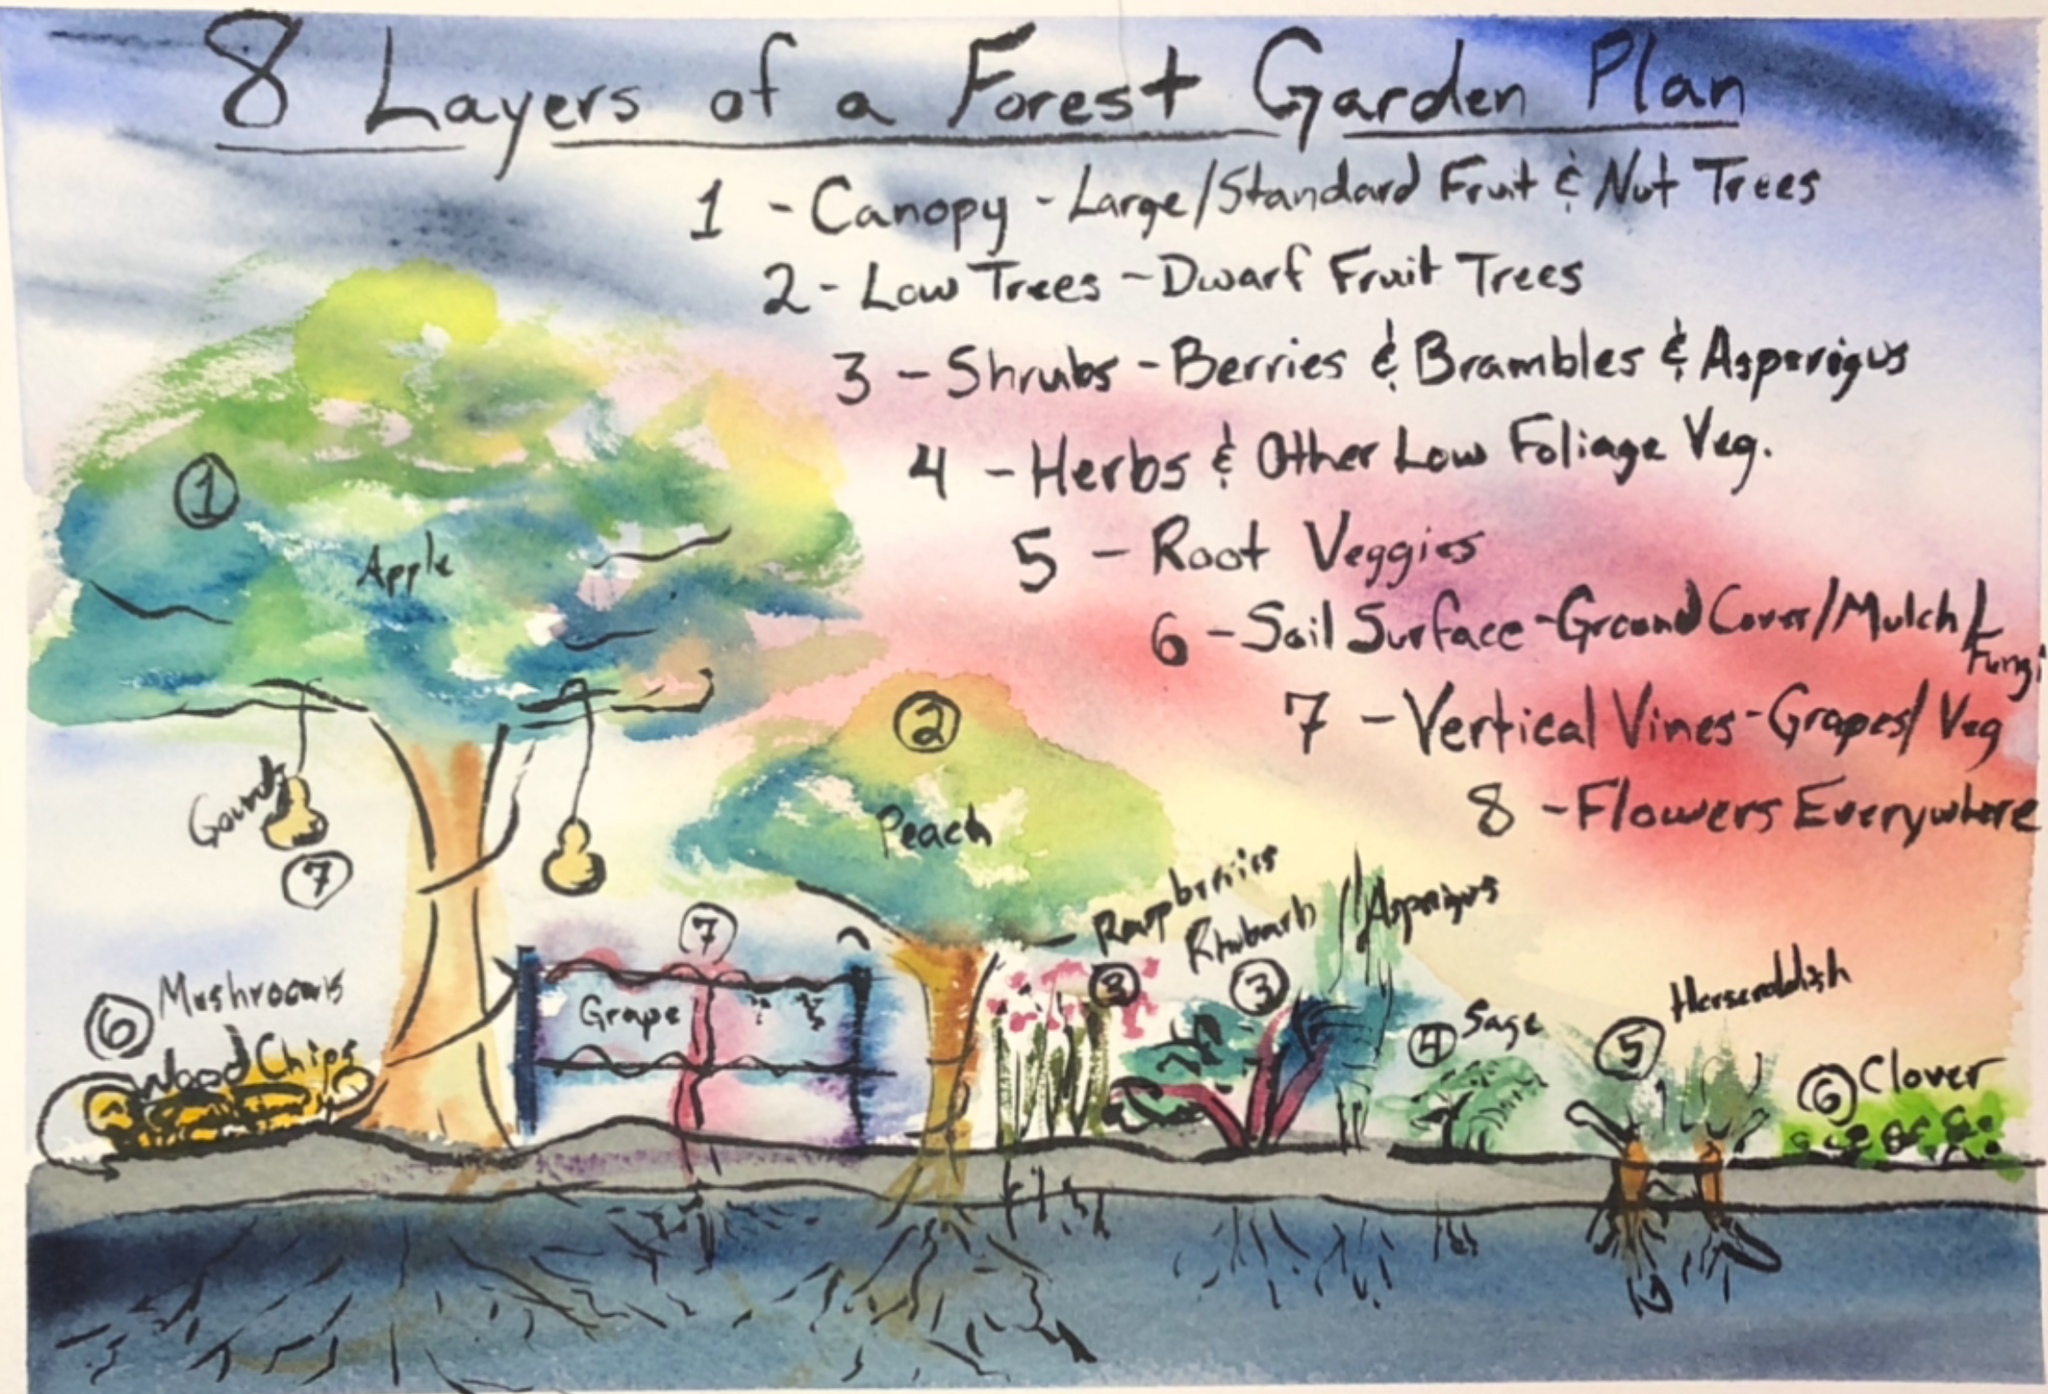 8 Layers of a Forest Garden Plan
1 - Canopy - Large/Standard Fruit & Nut Trees
2 - Low Trees - Dwarf Fruit Trees
3 - Shrubs - Berries & Brambles & Asparigus
4 - Herbs & Other Low Foliage Veg.
5 - Root Veggies
6 - Soil Surface - Ground Cover/Mulch/
Fungi
7 - Vertical Vines - Grapes/Veg
8 - Flowers Everywhere
1
Apple
2
Peach
Gourds
7
7
Grape
6 Mushrooms
Wood Chips
Raspberries
3
Rhubarb
3
Asparigus
4 Sage
5
Horseraddish
6 Clover